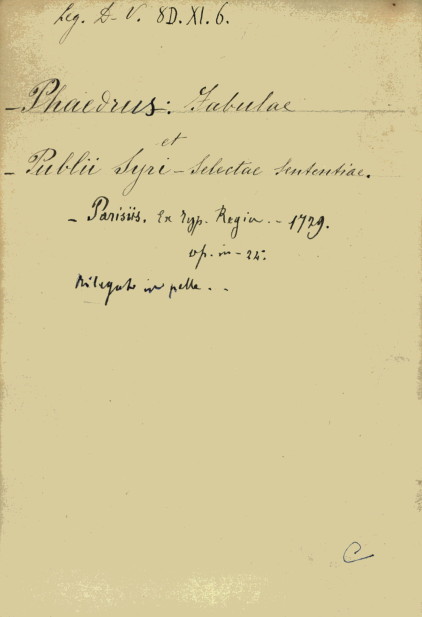 Leg. D-V. 8D. XI. 6.
- Phaedrus: Fabulae
et
- Publii Syri - Selectae Sententiae.
- Parisiis. Ex Typ. Regia. - 1729.
op. in - 25.
Rilegato in pelle. . -
C